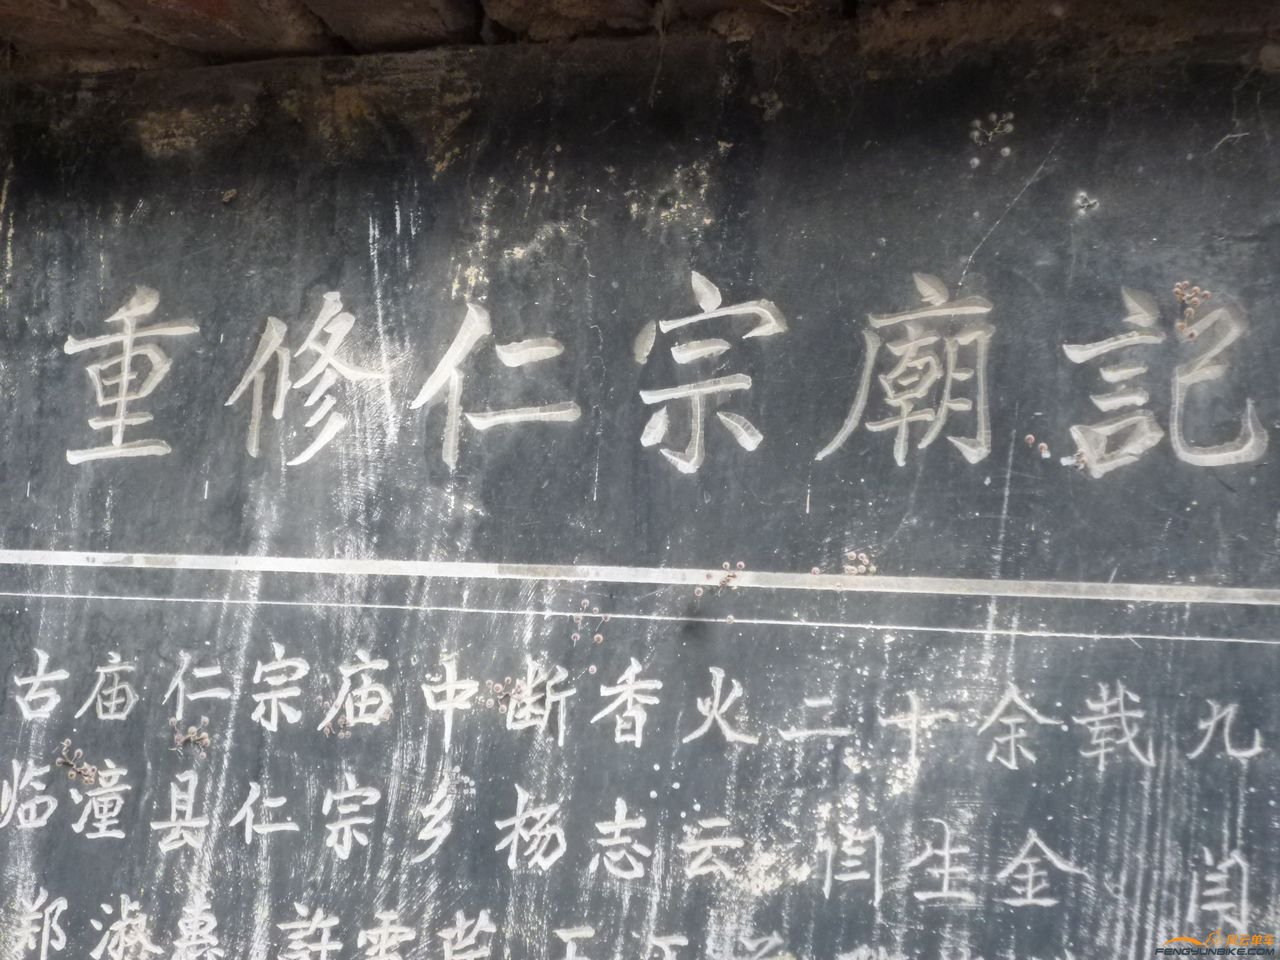 重修仁宗廟記
古庙仁宗庙中断香火二十余载九
临潼县仁宗乡杨志云闫生金闫
郑淑惠許雲芒
FENGYUNBIKE.COM